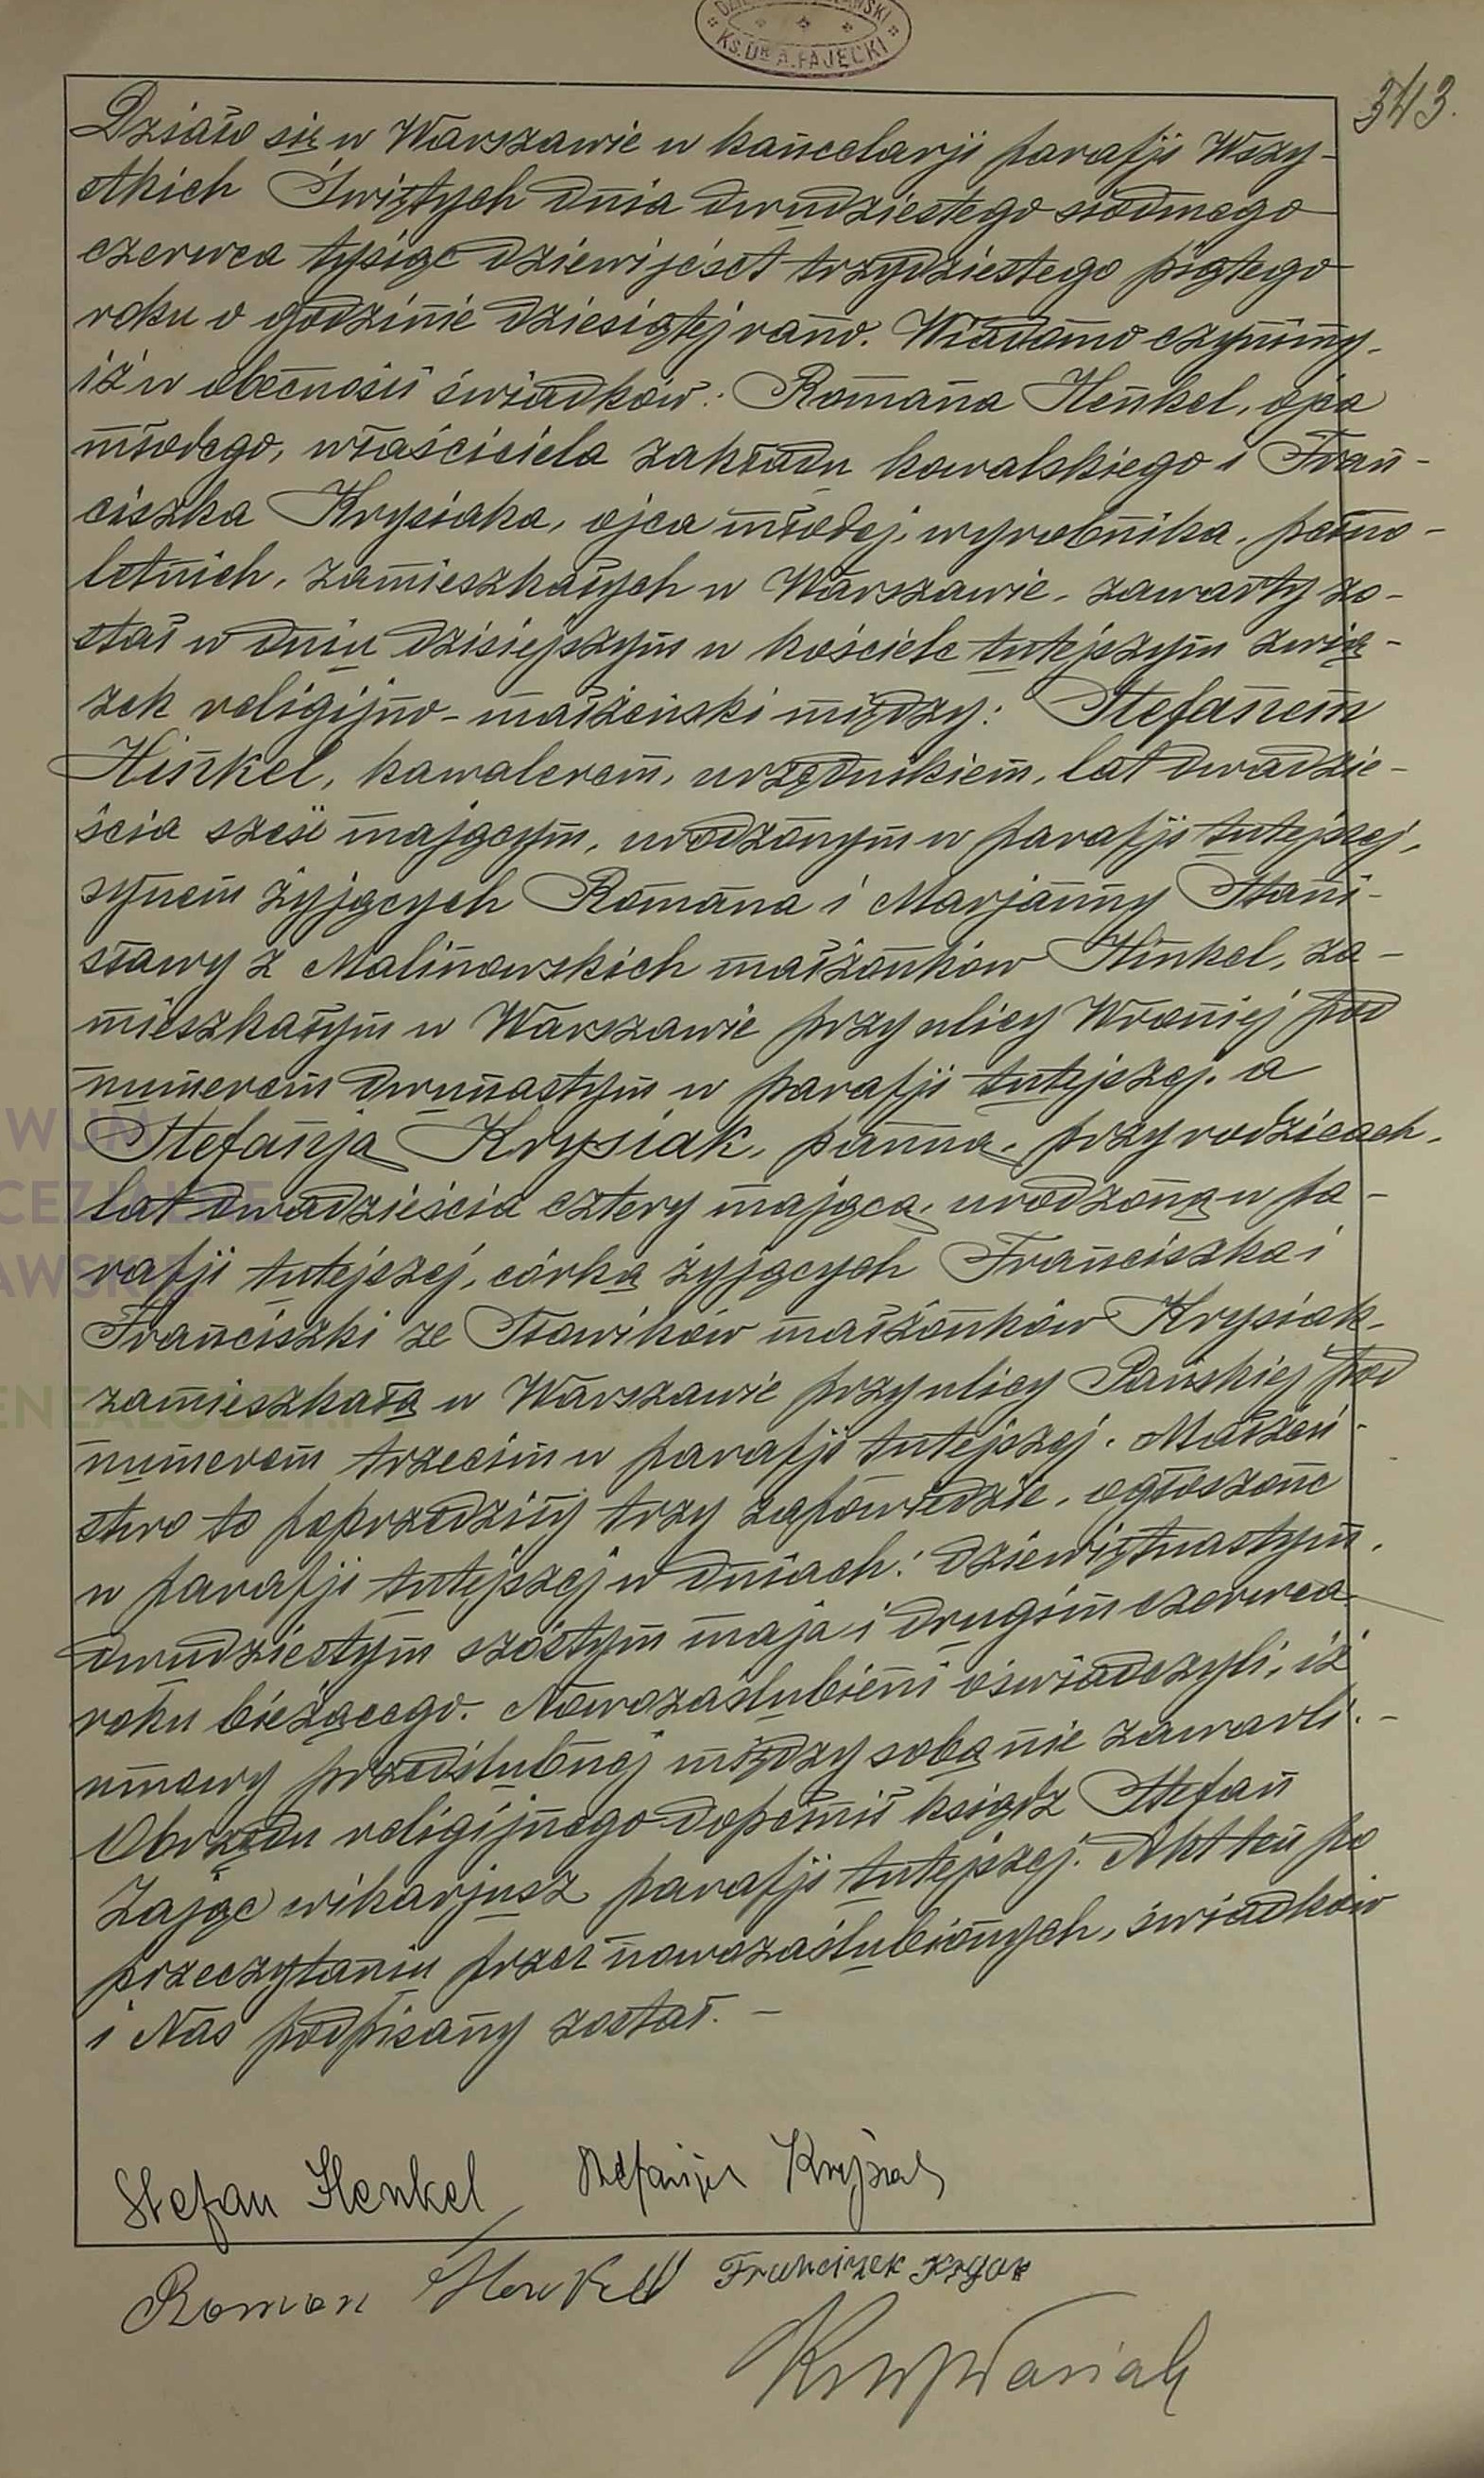 KS. DR A. FAJĘCKI
343.
Działo się w Warszawie w kancelarji parafji Wszy-
stkich Świętych dnia dwudziestego siódmego
czerwca tysiąc dziewięćset trzydziestego piątego
roku o godzinie dziesiątej rano. Wiadomo czynimy,
iż w obecności świadków: Romana Henkel, ojca
młodego, właściciela zakładu kowalskiego i Fran-
ciszka Krysiaka, ojca młodej, wyrobnika, pełno-
letnich, zamieszkałych w Warszawie, zawarty zo-
stał w dniu dzisiejszym w kościele tutejszym zwią-
zek religijno-małżeński między: Stefanem
Henkel, kawalerem, urzędnikiem, lat dwadzie-
ścia sześć mającym, urodzonym w parafji tutejszej,
synem żyjących Romana i Marjanny Stani-
sławy z Malinowskich małżonków Henkel, za-
mieszkałym w Warszawie przy ulicy Wroniej pod
numerem dwunastym w parafji tutejszej, a
Stefanją Krysiak, panną, przy rodzicach,
lat dwadzieścia cztery mającą, urodzoną w pa-
rafji tutejszej, córką żyjących Franciszka i
Franciszki ze Sławików małżonków Krysiak,
zamieszkałą w Warszawie przy ulicy Pańskiej pod
numerem trzecim w parafji tutejszej. Małżeń-
stwo to poprzedziły trzy zapowiedzie, ogłoszone
w parafji tutejszej w dniach: dziewiętnastym,
dwudziestym szóstym maja i drugim czerwca
roku bieżącego. Nowozaślubieni oświadczyli, iż
umowy przedślubnej między sobą nie zawarli. -
Obrzędu religijnego dopełnił ksiądz Stefan
Zając wikarjusz parafji tutejszej. Akt ten po
przeczytaniu przez nowozaślubionych, świadków
i Nas podpisany został. -
Stefan Henkel Stefanja Krysiak
Roman Henkel Franciszek